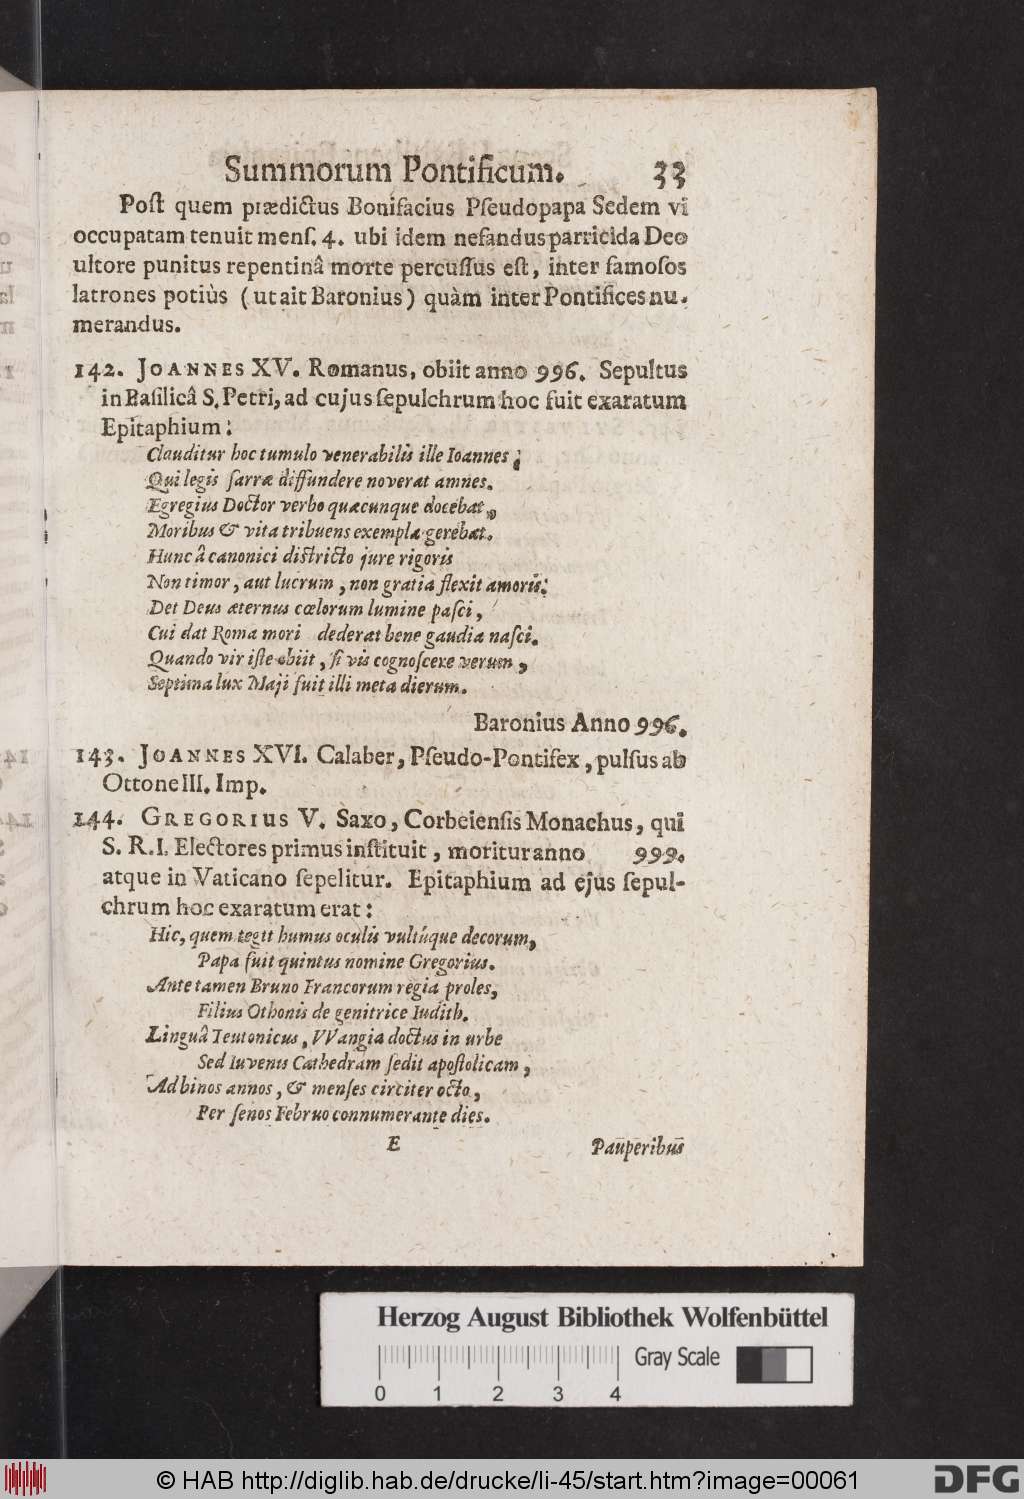 Summorum Pontificum. 33
Poſt quem prædictus Bonifacius Pſeudopapa Sedem vi
occupatam tenuit menſ. 4. ubi idem nefandus parricida Deo
ultore punitus repentinâ morte percuſſus eſt, inter famoſos
latrones potiùs (ut ait Baronius) quàm inter Pontifices nu-
merandus.
142. JOANNES XV. Romanus, obiit anno 996. Sepultus
in Baſilicâ S. Petri, ad cujus ſepulchrum hoc fuit exaratum
Epitaphium:
Clauditur hoc tumulo venerabilis ille Ioannes;
Qui legis ſarræ diffundere noverat amnes.
Egregius Doctor verbo quæcunque docebat,
Moribus & vita tribuens exempla gerebat.
Hunc â canonici diſtricto jure rigoris
Non timor, aut lucrum, non gratia flexit amoris:
Det Deus æternus cœlorum lumine paſci,
Cui dat Roma mori dederat bene gaudia naſci.
Quando vir iſte obiit, ſi vis cognoſcere verum,
Septima lux Maji fuit illi meta dierum.
Baronius Anno 996.
143. JOANNES XVI. Calaber, Pſeudo-Pontifex, pulſus ab
Ottone III. Imp.
144. GREGORIUS V. Saxo, Corbeienſis Monachus, qui
S. R. I. Electores primus inſtituit, moritur anno 999.
atque in Vaticano ſepelitur. Epitaphium ad ejus ſepul-
chrum hoc exaratum erat:
Hic, quem tegit humus oculis vultúque decorum,
Papa fuit quintus nomine Gregorius.
Ante tamen Bruno Francorum regia proles,
Filius Othonis de genitrice Iudith.
Linguâ Teutonicus, VVangia doctus in urbe
Sed Iuvenis Cathedram ſedit apoſtolicam,
Ad binos annos, & menſes circiter octo,
Per ſenos Februo connumerante dies.
E Pauperibus
Herzog August Bibliothek Wolfenbüttel
Gray Scale
0 1 2 3 4
© HAB http://diglib.hab.de/drucke/li-45/start.htm?image=00061
DFG